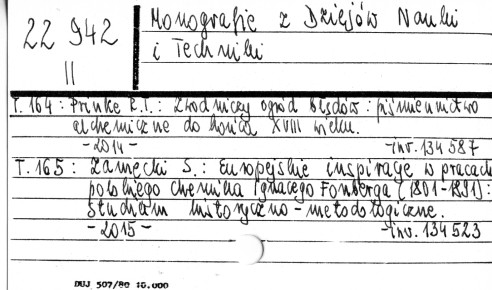 22 942
II
Monografie z Dziejów Nauki
i Techniki
T. 164: Prinke R.T.: Zwodniczy ogród błędów: piśmiennictwo
alchemiczne do końca XVIII wieku.
- 2014 - -inv. 134 587
T. 165: Zamecki S.: Europejskie inspiracje w pracach
polskiego chemika Ignacego Fonberga (1801-1891):
studium historyczno-metodologiczne.
- 2015 - -inv. 134 523
DUJ 507/80 10.000